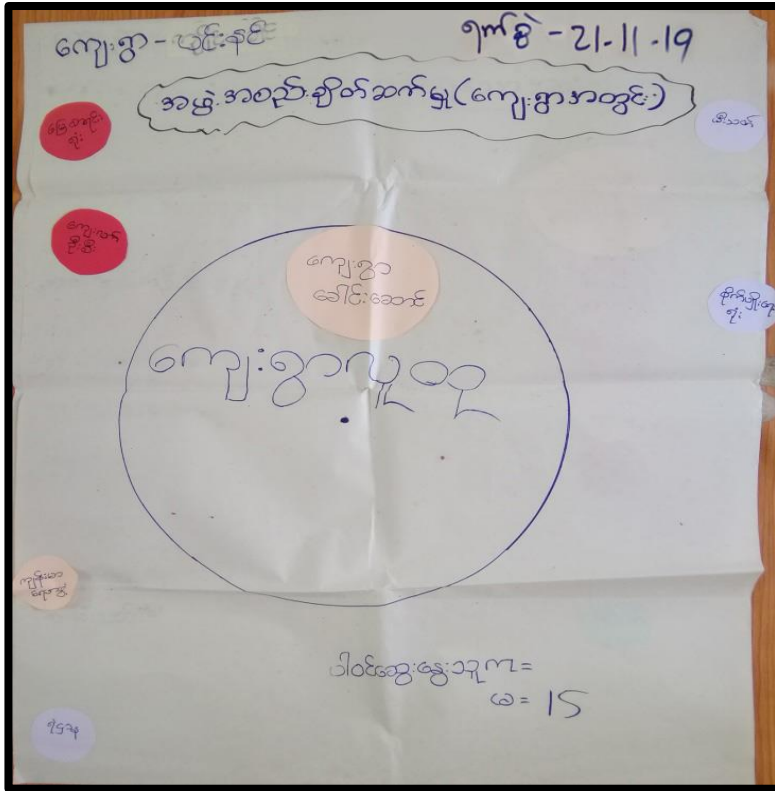 ကျေးရွာ - ဟိုင်းနင်း
ရက်စွဲ - 21-11-19
အဖွဲ့အစည်းချိတ်ဆက်မှု (ကျေးရွာအတွင်း)
မြေစာရင်း
ရုံး
မီးသတ်
ကျေးလက်
ဦးစီး
ကျေးရွာ
ခေါင်းဆောင်
စိုက်ပျိုးရေး
ရုံး
ကျေးရွာလူထု
ကျန်းမာ
ရေးမှူး
ပါဝင်ဆွေးနွေးသူ ကျား =
မ = 15
ရဲဌာန